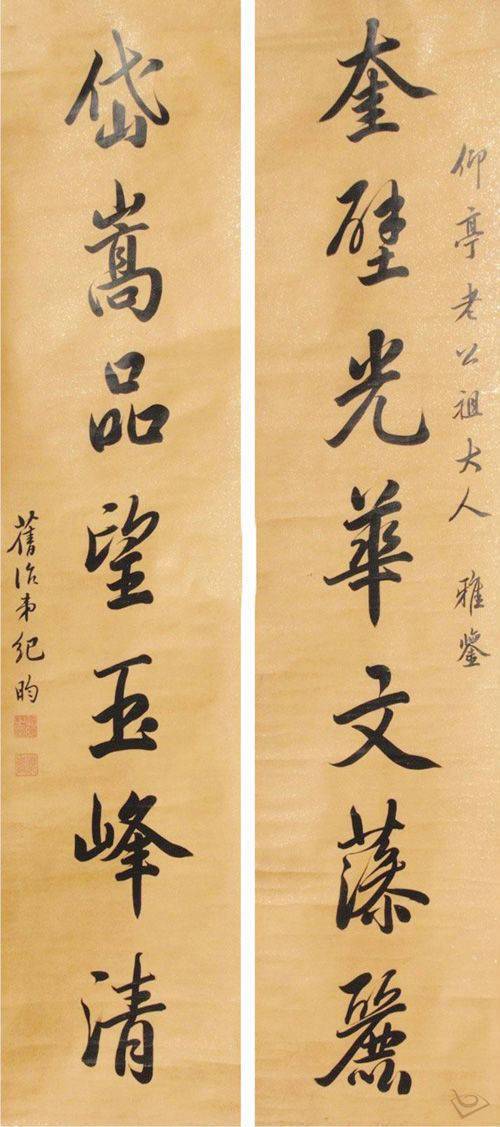 仰亭老公祖大人 雅鑒
奎壁光華文藻麗
岱嵩品望玉峰清
舊治弟紀昀